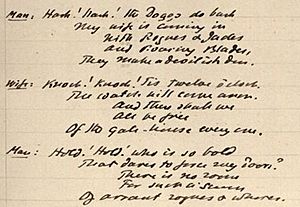 Man: Hark! Hark! the Doggs do bark
My wife is coming in
With Rogues & Jades
and Roaring Blades,
They make a devilish din.
Wife: Knock! Knock! 'Tis twelve o'clock
The watch will come anon.
And then shall we
All be free
Of the gate-house every one.
Man: Hold! Hold! who is so bold
That dares to force my doors?
There is no room
For such a scum
Of arrant rogues & whores.